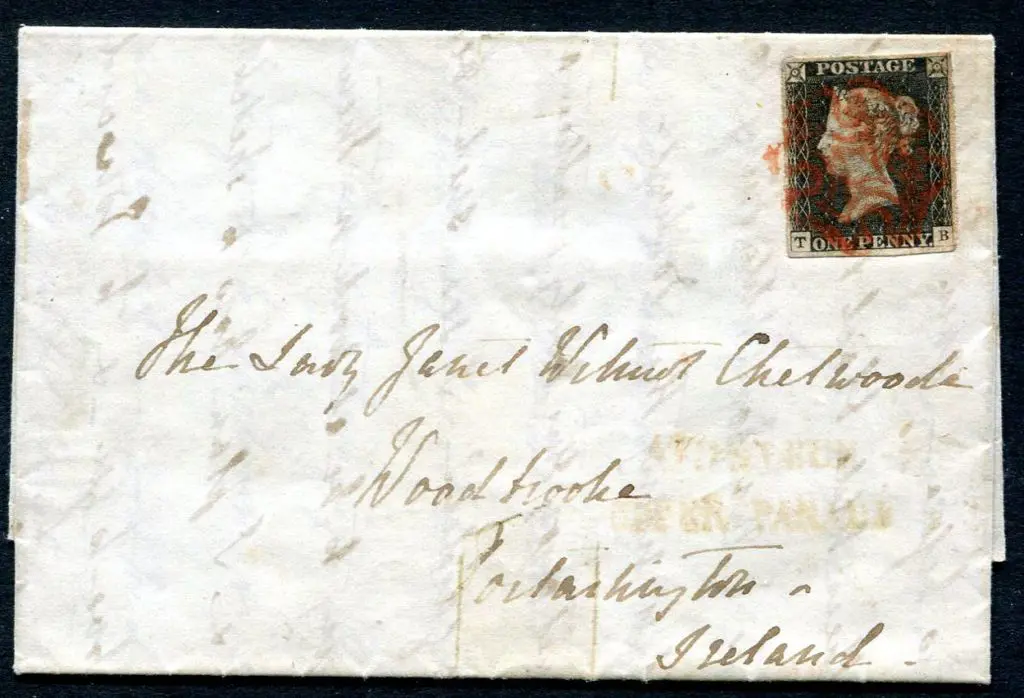 POSTAGE
T ONE PENNY. B
The Lady Janet Wilmot Chetwoode
Woodbrooke
Portarlington
Ireland